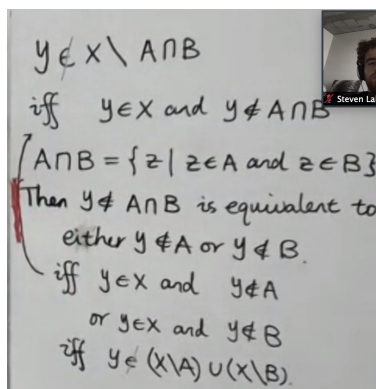 y ∉ X \ A∩B
iff y∈X and y∉ A∩B
A∩B = {z | z∈A and z∈B}
Then y∉ A∩B is equivalent to
either y∉A or y∉B.
iff y∈X and y∉A
or y∈X and y∉B
iff y∈(X\A) ∪(X\B).
Steven La